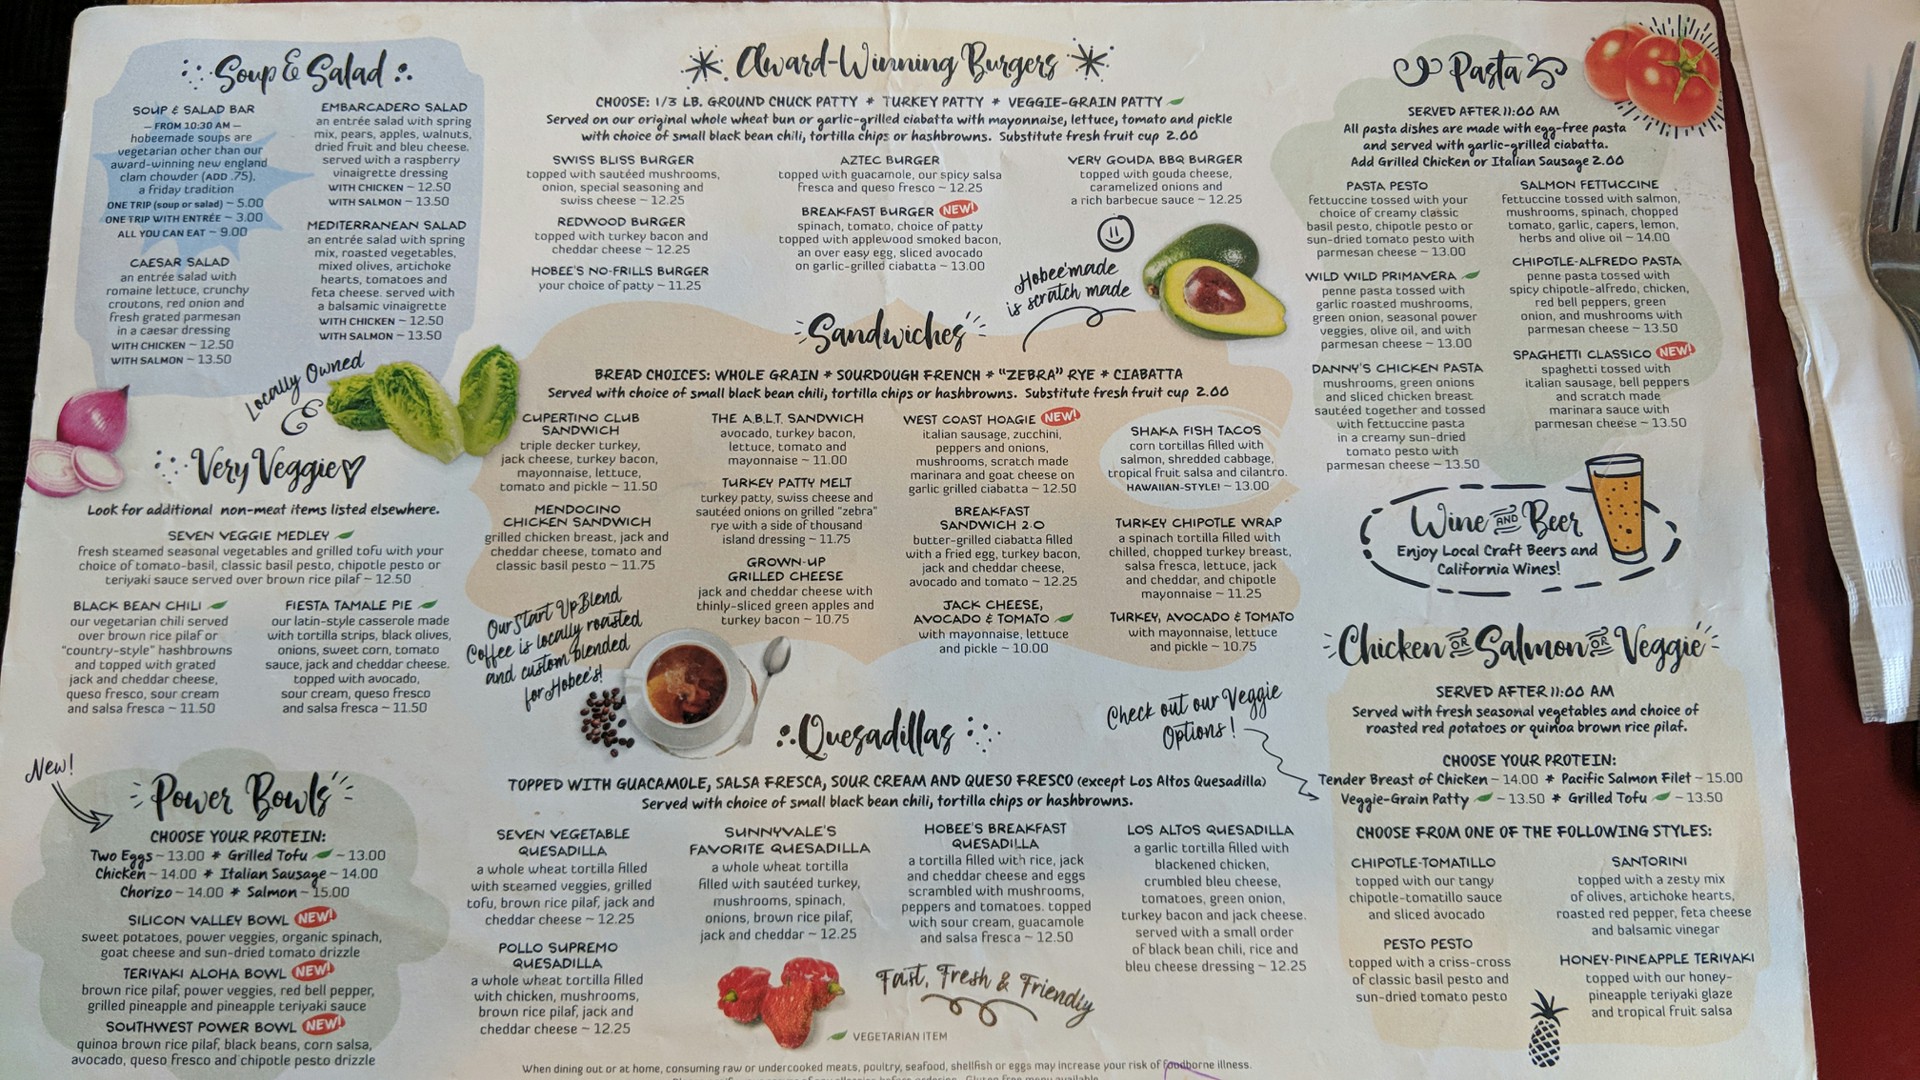 Soup & Salad
SOUP & SALAD BAR
— FROM 10:30 AM —
hobeemade soups are
vegetarian other than our
award-winning new england
clam chowder (ADD .75),
a friday tradition
ONE TRIP (soup or salad) ~ 5.00
ONE TRIP WITH ENTRÉE ~ 3.00
ALL YOU CAN EAT ~ 9.00
CAESAR SALAD
an entrée salad with
romaine lettuce, crunchy
croutons, red onion and
fresh grated parmesan
in a caesar dressing
WITH CHICKEN ~ 12.50
WITH SALMON ~ 13.50
EMBARCADERO SALAD
an entrée salad with spring
mix, pears, apples, walnuts,
dried fruit and bleu cheese.
served with a raspberry
vinaigrette dressing
WITH CHICKEN ~ 12.50
WITH SALMON ~ 13.50
MEDITERRANEAN SALAD
an entrée salad with spring
mix, roasted vegetables,
mixed olives, artichoke
hearts, tomatoes and
feta cheese. served with
a balsamic vinaigrette
WITH CHICKEN ~ 12.50
WITH SALMON ~ 13.50
Locally Owned
&
Very Veggie
Look for additional non-meat items listed elsewhere.
SEVEN VEGGIE MEDLEY
fresh steamed seasonal vegetables and grilled tofu with your
choice of tomato-basil, classic basil pesto, chipotle pesto or
teriyaki sauce served over brown rice pilaf ~ 12.50
BLACK BEAN CHILI
our vegetarian chili served
over brown rice pilaf or
"country-style" hashbrowns
and topped with grated
jack and cheddar cheese,
queso fresco, sour cream
and salsa fresca ~ 11.50
FIESTA TAMALE PIE
our latin-style casserole made
with tortilla strips, black olives,
onions, sweet corn, tomato
sauce, jack and cheddar cheese.
topped with avocado,
sour cream, queso fresco
and salsa fresca ~ 11.50
New!
Power Bowls
CHOOSE YOUR PROTEIN:
Two Eggs ~ 13.00 * Grilled Tofu ~ 13.00
Chicken ~ 14.00 * Italian Sausage ~ 14.00
Chorizo ~ 14.00 * Salmon ~ 15.00
SILICON VALLEY BOWL NEW!
sweet potatoes, power veggies, organic spinach,
goat cheese and sun-dried tomato drizzle
TERIYAKI ALOHA BOWL NEW!
brown rice pilaf, power veggies, red bell pepper,
grilled pineapple and pineapple teriyaki sauce
SOUTHWEST POWER BOWL NEW!
quinoa brown rice pilaf, black beans, corn salsa,
avocado, queso fresco and chipotle pesto drizzle
Award-Winning Burgers
CHOOSE: 1/3 LB. GROUND CHUCK PATTY * TURKEY PATTY * VEGGIE-GRAIN PATTY
Served on our original whole wheat bun or garlic-grilled ciabatta with mayonnaise, lettuce, tomato and pickle
with choice of small black bean chili, tortilla chips or hashbrowns. Substitute fresh fruit cup 2.00
SWISS BLISS BURGER
topped with sautéed mushrooms,
onion, special seasoning and
swiss cheese ~ 12.25
REDWOOD BURGER
topped with turkey bacon and
cheddar cheese ~ 12.25
HOBEE'S NO-FRILLS BURGER
your choice of patty ~ 11.25
AZTEC BURGER
topped with guacamole, our spicy salsa
fresca and queso fresco ~ 12.25
BREAKFAST BURGER NEW!
spinach, tomato, choice of patty
topped with applewood smoked bacon,
an over easy egg, sliced avocado
on garlic-grilled ciabatta ~ 13.00
VERY GOUDA BBQ BURGER
topped with gouda cheese,
caramelized onions and
a rich barbecue sauce ~ 12.25
Hobee'made
is scratch made
Sandwiches
BREAD CHOICES: WHOLE GRAIN * SOURDOUGH FRENCH * "ZEBRA" RYE * CIABATTA
Served with choice of small black bean chili, tortilla chips or hashbrowns. Substitute fresh fruit cup 2.00
CUPERTINO CLUB
SANDWICH
triple decker turkey,
jack cheese, turkey bacon,
mayonnaise, lettuce,
tomato and pickle ~ 11.50
MENDOCINO
CHICKEN SANDWICH
grilled chicken breast, jack and
cheddar cheese, tomato and
classic basil pesto ~ 11.75
THE A.B.L.T. SANDWICH
avocado, turkey bacon,
lettuce, tomato and
mayonnaise ~ 11.00
TURKEY PATTY MELT
turkey patty, swiss cheese and
sautéed onions on grilled "zebra"
rye with a side of thousand
island dressing ~ 11.75
GROWN-UP
GRILLED CHEESE
jack and cheddar cheese with
thinly-sliced green apples and
turkey bacon ~ 10.75
WEST COAST HOAGIE NEW!
italian sausage, zucchini,
peppers and onions,
mushrooms, scratch made
marinara and goat cheese on
garlic grilled ciabatta ~ 12.50
BREAKFAST
SANDWICH 2.0
butter-grilled ciabatta filled
with a fried egg, turkey bacon,
jack and cheddar cheese,
avocado and tomato ~ 12.25
JACK CHEESE,
AVOCADO & TOMATO
with mayonnaise, lettuce
and pickle ~ 10.00
SHAKA FISH TACOS
corn tortillas filled with
salmon, shredded cabbage,
tropical fruit salsa and cilantro.
HAWAIIAN-STYLE! ~ 13.00
TURKEY CHIPOTLE WRAP
a spinach tortilla filled with
chilled, chopped turkey breast,
salsa fresca, lettuce, jack
and cheddar, and chipotle
mayonnaise ~ 11.25
TURKEY, AVOCADO & TOMATO
with mayonnaise, lettuce
and pickle ~ 10.75
Our Start Up Blend
Coffee is locally roasted
and custom blended
for Hobee's!
Quesadillas
TOPPED WITH GUACAMOLE, SALSA FRESCA, SOUR CREAM AND QUESO FRESCO (except Los Altos Quesadilla)
Served with choice of small black bean chili, tortilla chips or hashbrowns.
SEVEN VEGETABLE
QUESADILLA
a whole wheat tortilla filled
with steamed veggies, grilled
tofu, brown rice pilaf, jack and
cheddar cheese ~ 12.25
POLLO SUPREMO
QUESADILLA
a whole wheat tortilla filled
with chicken, mushrooms,
brown rice pilaf, jack and
cheddar cheese ~ 12.25
SUNNYVALE'S
FAVORITE QUESADILLA
a whole wheat tortilla
filled with sautéed turkey,
mushrooms, spinach,
onions, brown rice pilaf,
jack and cheddar ~ 12.25
HOBEE'S BREAKFAST
QUESADILLA
a tortilla filled with rice, jack
and cheddar cheese and eggs
scrambled with mushrooms,
peppers and tomatoes. topped
with sour cream, guacamole
and salsa fresca ~ 12.50
LOS ALTOS QUESADILLA
a garlic tortilla filled with
blackened chicken,
crumbled bleu cheese,
tomatoes, green onion,
turkey bacon and jack cheese.
served with a small order
of black bean chili, rice and
bleu cheese dressing ~ 12.25
Fast, Fresh & Friendly
VEGETARIAN ITEM
When dining out or at home, consuming raw or undercooked meats, poultry, seafood, shellfish or eggs may increase your risk of foodborne illness.
Pasta
SERVED AFTER 11:00 AM
All pasta dishes are made with egg-free pasta
and served with garlic-grilled ciabatta.
Add Grilled Chicken or Italian Sausage 2.00
PASTA PESTO
fettuccine tossed with your
choice of creamy classic
basil pesto, chipotle pesto or
sun-dried tomato pesto with
parmesan cheese ~ 13.00
WILD WILD PRIMAVERA
penne pasta tossed with
garlic roasted mushrooms,
green onion, seasonal power
veggies, olive oil, and with
parmesan cheese ~ 13.00
DANNY'S CHICKEN PASTA
mushrooms, green onions
and sliced chicken breast
sautéed together and tossed
with fettuccine pasta
in a creamy sun-dried
tomato pesto with
parmesan cheese ~ 13.50
SALMON FETTUCCINE
fettuccine tossed with salmon,
mushrooms, spinach, chopped
tomato, garlic, capers, lemon,
herbs and olive oil ~ 14.00
CHIPOTLE-ALFREDO PASTA
penne pasta tossed with
spicy chipotle-alfredo, chicken,
red bell peppers, green
onion, and mushrooms with
parmesan cheese ~ 13.50
SPAGHETTI CLASSICO NEW!
spaghetti tossed with
italian sausage, bell peppers
and scratch made
marinara sauce with
parmesan cheese ~ 13.50
Wine AND Beer
Enjoy Local Craft Beers and
California Wines!
Check out our Veggie
Options!
Chicken OR Salmon OR Veggie
SERVED AFTER 11:00 AM
Served with fresh seasonal vegetables and choice of
roasted red potatoes or quinoa brown rice pilaf.
CHOOSE YOUR PROTEIN:
Tender Breast of Chicken ~ 14.00 * Pacific Salmon Filet ~ 15.00
Veggie-Grain Patty ~ 13.50 * Grilled Tofu ~ 13.50
CHOOSE FROM ONE OF THE FOLLOWING STYLES:
CHIPOTLE-TOMATILLO
topped with our tangy
chipotle-tomatillo sauce
and sliced avocado
PESTO PESTO
topped with a criss-cross
of classic basil pesto and
sun-dried tomato pesto
SANTORINI
topped with a zesty mix
of olives, artichoke hearts,
roasted red pepper, feta cheese
and balsamic vinegar
HONEY-PINEAPPLE TERIYAKI
topped with our honey-
pineapple teriyaki glaze
and tropical fruit salsa